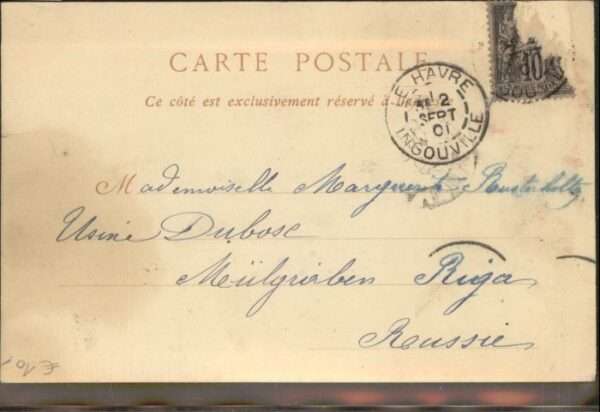 CARTE POSTALE
Ce côté est exclusivement réservé à
LE HAVRE
12
SEPT
01
INGOUVILLE
10
Mademoiselle Marguerite
Usine Dubosc
Mülgraben Riga
Russie